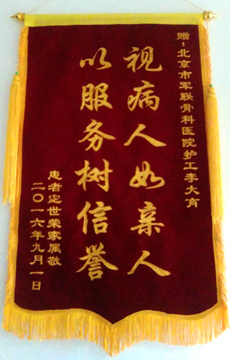 赠:北京市军联骨科医院护工李大育
视病人如亲人
以服务树信誉
患者宓世荣家属敬
二〇一六年九月一日